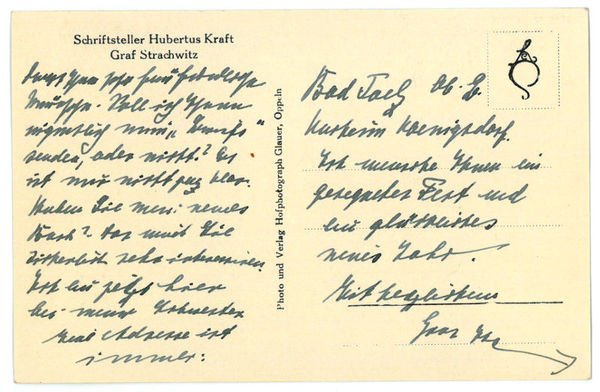 Schriftsteller Hubertus Kraft
Graf Strachwitz
Dank Ihnen sehr für freundliche
Wünsche. Soll ich Ihnen
eigentlich mein „
senden, oder nicht? Es
ist mir nicht ganz klar.
Haben Sie mein neues
Buch? Das wird Sie
sicherlich sehr interessieren.
Ich bin jetzt hier
bei meiner Schwester
Meine Adresse ist
immer:
Photo und Verlag Hofphotograph Glauer, Oppeln
Bad Toelz Ob. B.
Kurheim Koenigsdorf.
Ich wuensche Ihnen ein
gesegnetes Fest und
ein glückliches
neues Jahr.
Mit
Ihr